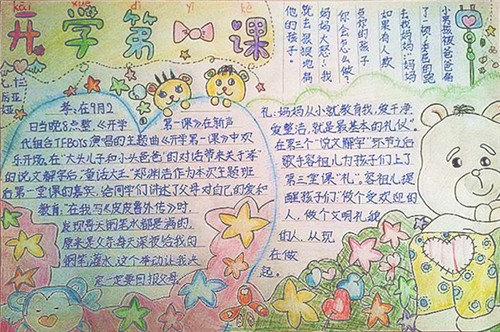 kāi xué dì yī kè
开学第课
小男孩被爸爸
了一顿,委屈的跑
去找妈妈:“妈妈
如果有人欺
负你的孩子
你会怎么做。
妈妈大怒:“我
就去狠狠地揍
他的孩子。
孝:在9月2
日当晚8点整,《开学第一课》在新声
代组合TFBoys演唱的主题曲《开学第一课》中欢
乐开场,在“大头儿子和小头爸爸”的对话带来关于“孝”
的说文解字后,“童话大王”郑渊洁作为本次主题班
后第一堂课的嘉宾,给同学们讲述了父母对自己的爱和
教育,在我写《皮皮鲁外传》时,
发现每天钢笔水都是满的,
原来是父亲每天深夜给我的
钢笔灌水,这个举动让我决
定一定要回报父母.
礼:妈妈从小就教育我,爱干净
爱整洁,就是最基本的礼仪”。
在第三个“说文解字”环节之后
歌手容祖儿为孩子们上了
第三堂课“礼”。容祖儿提
醒孩子们“做个受欢迎的
人,做个文明礼貌
的人,从现
在做
起。